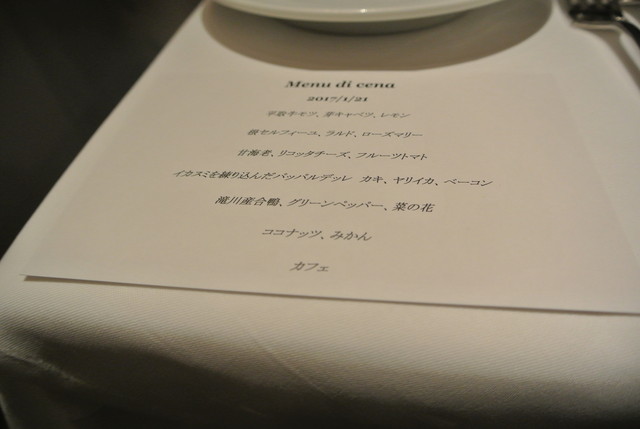 Menu di cena
2017/1/21
平取牛モツ、芽キャベツ、レモン
根セルフィーユ、ラルド、ローズマリー
甘海老、リコッタチーズ、フルーツトマト
イカスミを練り込んだパッパルデッレ カキ、ヤリイカ、ベーコン
滝川産合鴨、グリーンペッパー、菜の花
ココナッツ、みかん
カフェ